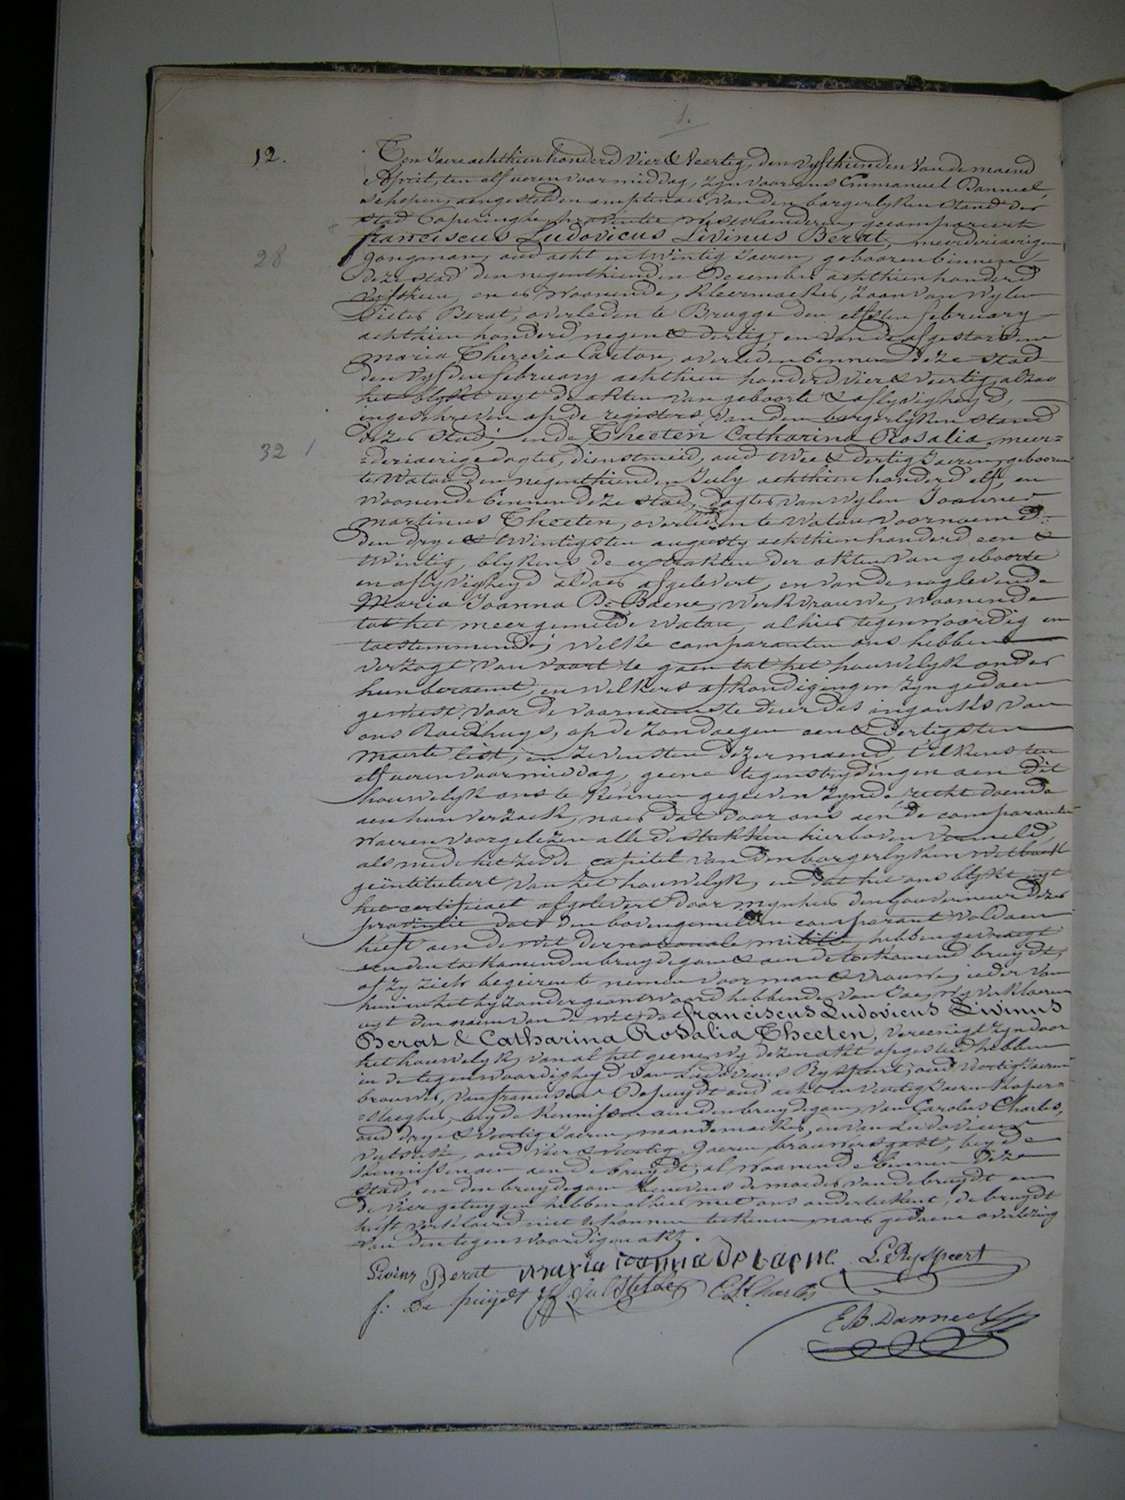 1.
12.
Ten Jaere achthien honderd Vier & Veertig, den vyfthienden van de maend
April, ten elf ueren voormiddag, zyn voor ons Emmanuel Danneel,
schepen, aengestelden amptenaer van den borgerlyken Stand der
Stad Poperinghe, provintie Westvlaenderen, gecompareert
franciscus Ludovicus Livinus Berat, meerderjaerigen
Jongman, oud acht en twintig Jaeren, gebooren binnen
28
deze stad den negenthienden December achthien honderd
vyfthien, en er Woonende, kleermaeker, zoon van wylen
Pieter Berat, overleden te Brugge den elfsten february
achthien honderd negen & dertig, en van de afgestorvene
Maria Theresia Carton, overleden binnen deze stad
den vyfden february achthien honderd vier & veertig, alzoo
het blykt uyt de akten van geboorte & aflyvigheyd,
ingeschreven op de registers van den borgerlyken stand
dezer stad; ende Theeten Catharina Rosalia, meer-
32
derjaerige dogter, dienstmeid, oud twee & dertig Jaeren, gebooren
te Watou den negenthienden July achthien honderd elf, en
Woonende binnen deze stad, dogter van wylen Joannes
Martinus Theeten, overleden te Watou voornoemd
den drye & twintigsten augusty achthien honderd een &
twintig, blykens de extrakten der akten van geboorte
en aflyvigheyd aldaer afgelevert, en van de noglevende
Maria Joanna De Baene, werkvrouwe, woonende
tot het meergemelde Watou, alhier tegenwoordig en
toestemmende; Welke comparanten ons hebben
verzogt van voort te gaen tot het houwelyk onder
hun beraemt, en welkers afkondigingen zyn gedaen
geweest voor de voornaemste deur des ingangs van
ons Raedhuys, op de zondaegen een & dertigsten
maerte lest, en zevensten dezer maend, t'elkens ten
elf ueren voormiddag, geene tegenstrydingen aen dit
houwelyk ons te kennen gegeven zynde, recht doende
aen hun verzoek, naer dat door ons aen de comparanten
Waeren voorgelezen alle de stukken hierboven vermeld,
als mede het zesde capitel van den borgerlyken Wetboek
geïntituleert van het houwelyk, en dat het ons blykt uyt
het certificaet afgelevert door mynheer den Gouverneur dezer
provintie dat den bovengemelden comparant voldaen
heeft aen de wet der nationale militie, hebben gevraegt
aen den toekomenden bruydegom & aen de toekomende bruydt,
of zy zich begeeren te nemen voor man & vrouwe; ieder van
hun in het byzonder geantwoord hebbende van Jae, Wy verklaeren
uyt den naem van de wet, dat franciscus Ludovicus Livinus
Berat & Catharina Rosalia Theeten, vereenigt zyn door
het houwelyk, van al het geene wy dezen akt opgesteld hebben
in de tegenwoordigheyd van Ludovicus Ryspeert, oud veertig Jaeren
brouwer, van franciscus Depuydt oud acht en veertig Jaeren
beyde kennissen aen den bruydegom, van Carolus Charles,
oud drye & veertig Jaeren, mandemaeker, en van Ludovicus
oud vier & veertig Jaeren, brouwersgast, beyde
kennissen aen de bruydt, al woonende binnen deze
stad, en den bruydegom benevens de moeder van de bruydt en
de vier getuygen hebben alhier met ons onderteekent, de bruydt
heeft verklaerd niet te konnen teekenen, naer gedaene overlezing
van den tegenwoordigen akt.
Livinz Berat maria ioanna de baene L. Ryspeert
f: De puijdt C L Charles
E.B. Danneel